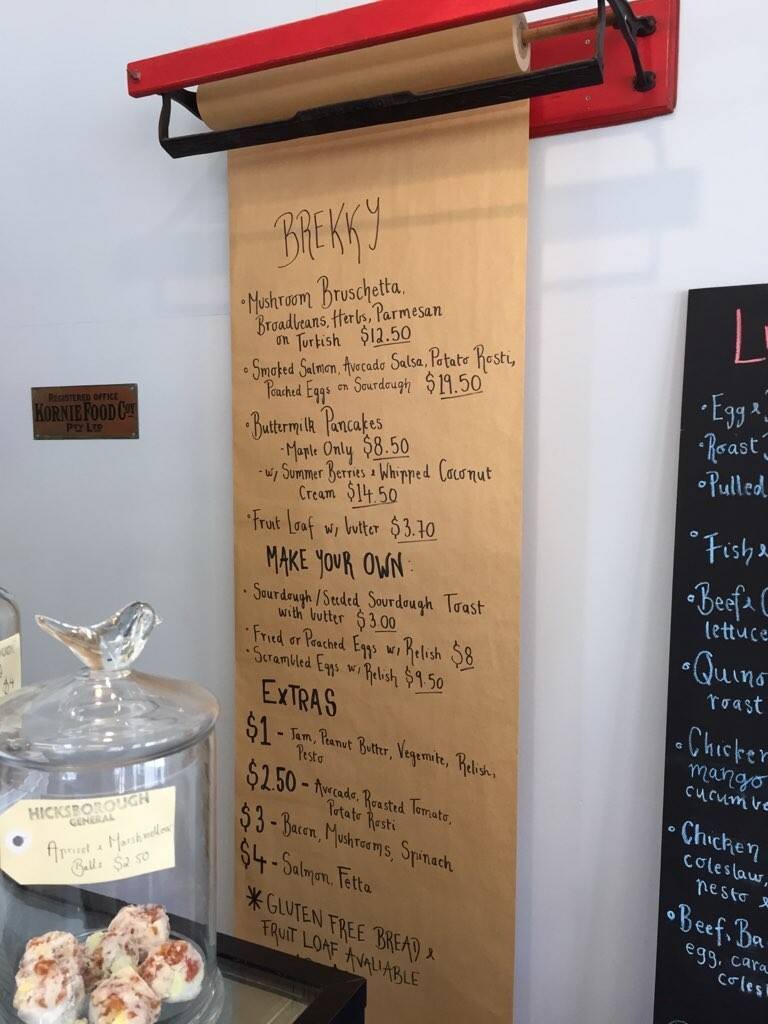 BREKKY
• Mushroom Bruschetta,
Broadbeans, Herbs, Parmesan
on Turkish $12.50
• Smoked Salmon, Avocado Salsa, Potato Rosti,
Poached Eggs on Sourdough $19.50
• Buttermilk Pancakes
- Maple Only $8.50
- w/ Summer Berries & Whipped Coconut
Cream $14.50
• Fruit Loaf w/ butter $3.70
MAKE YOUR OWN:
• Sourdough/Seeded Sourdough Toast
with butter $3.00
• Fried or Poached Eggs w/ Relish $8
• Scrambled Eggs w/ Relish $9.50
EXTRAS
$1 - Jam, Peanut Butter, Vegemite, Relish,
Pesto
$2.50 - Avocado, Roasted Tomato,
Potato Rosti
$3 - Bacon, Mushrooms, Spinach
$4 - Salmon, Fetta
* GLUTEN FREE BREAD &
FRUIT LOAF AVALIABLE
REGISTERED OFFICE
KORNIE FOOD COY
PTY LTD
HICKSBOROUGH
GENERAL
Apricot & Marshmallow
Balls $2.50
• Egg &
• Roast
• Pulled
• Fish &
• Beef &
lettuce
• Quino
roast
• Chicken
mango
cucumbe
• Chicken
coleslaw,
pesto &
• Beef, Ba
egg, cara
colesl